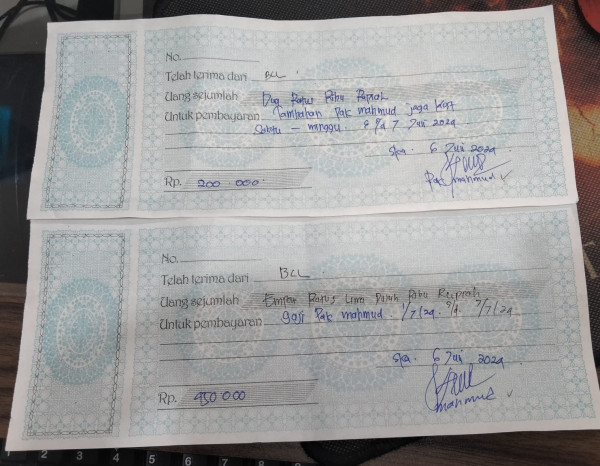 No.
Telah terima dari BCL.
Uang sejumlah Dua Ratus Ribu Rupiah
Untuk pembayaran Tambahan Pak mahmud jaga
Sabtu - minggu 6 s/d 7 Juli 2024
Ska. 6 Juli 2024
Rp. 200.000.
Pak mahmud
No.
Telah terima dari BCL.
Uang sejumlah Empat Ratus Lima Puluh Ribu Rupiah
Untuk pembayaran gaji Pak mahmud 1/7/24. s/d. 7/7/24
Ska. 6 Juli 2024
Rp. 450 000
mahmud
1 2 3 4 5 6 7